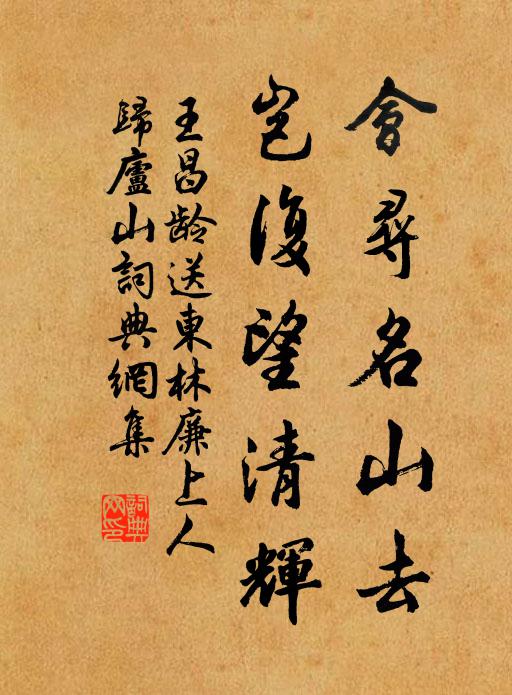 會尋名山去
豈復望清輝
王昌龄送東林廉上人
歸廬山詞典網集
詞典
网印